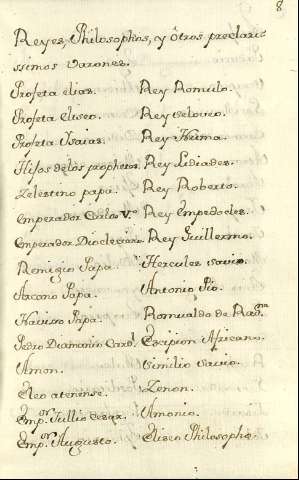 8
Reyes, Philosophos, y ôtros preclaris
ssimos varones.
Profeta elias. Rey Romulo.
Profeta Eliseo. Rey
Profeta Ysaias. Rey Numa.
Hijos de los prophetas. Rey Lidiades.
Zelestino papa. Rey Roberto.
Emperador Carlos V.º Rey Empedocles.
Emperador Diocleciano. Rey Guillermo.
Remigio Papa. Hercules savio.
Papa. Antonio Pio.
Papa. Romualdo de
Pedro Damiano Card.l Escipion Africano.
Amon. Similio savio.
Cleo ateniense. Zenon.
Emp.or Jullio Cesar. Amonio.
Emp.or Augusto. Eliseo Philosopho.